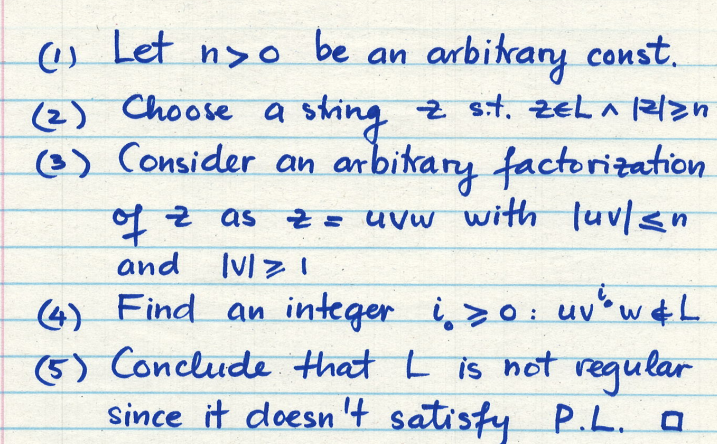 (1) Let n>0 be an arbitrary const.
(2) Choose a string z s.t. z∈L ∧ |z|≥n
(3) Consider an arbitrary factorization
of z as z = uvw with |uv|≤n
and |v|≥1
(4) Find an integer i₀≥0 : uv^i₀w∉L
(5) Conclude that L is not regular
since it doesn't satisfy P.L. □